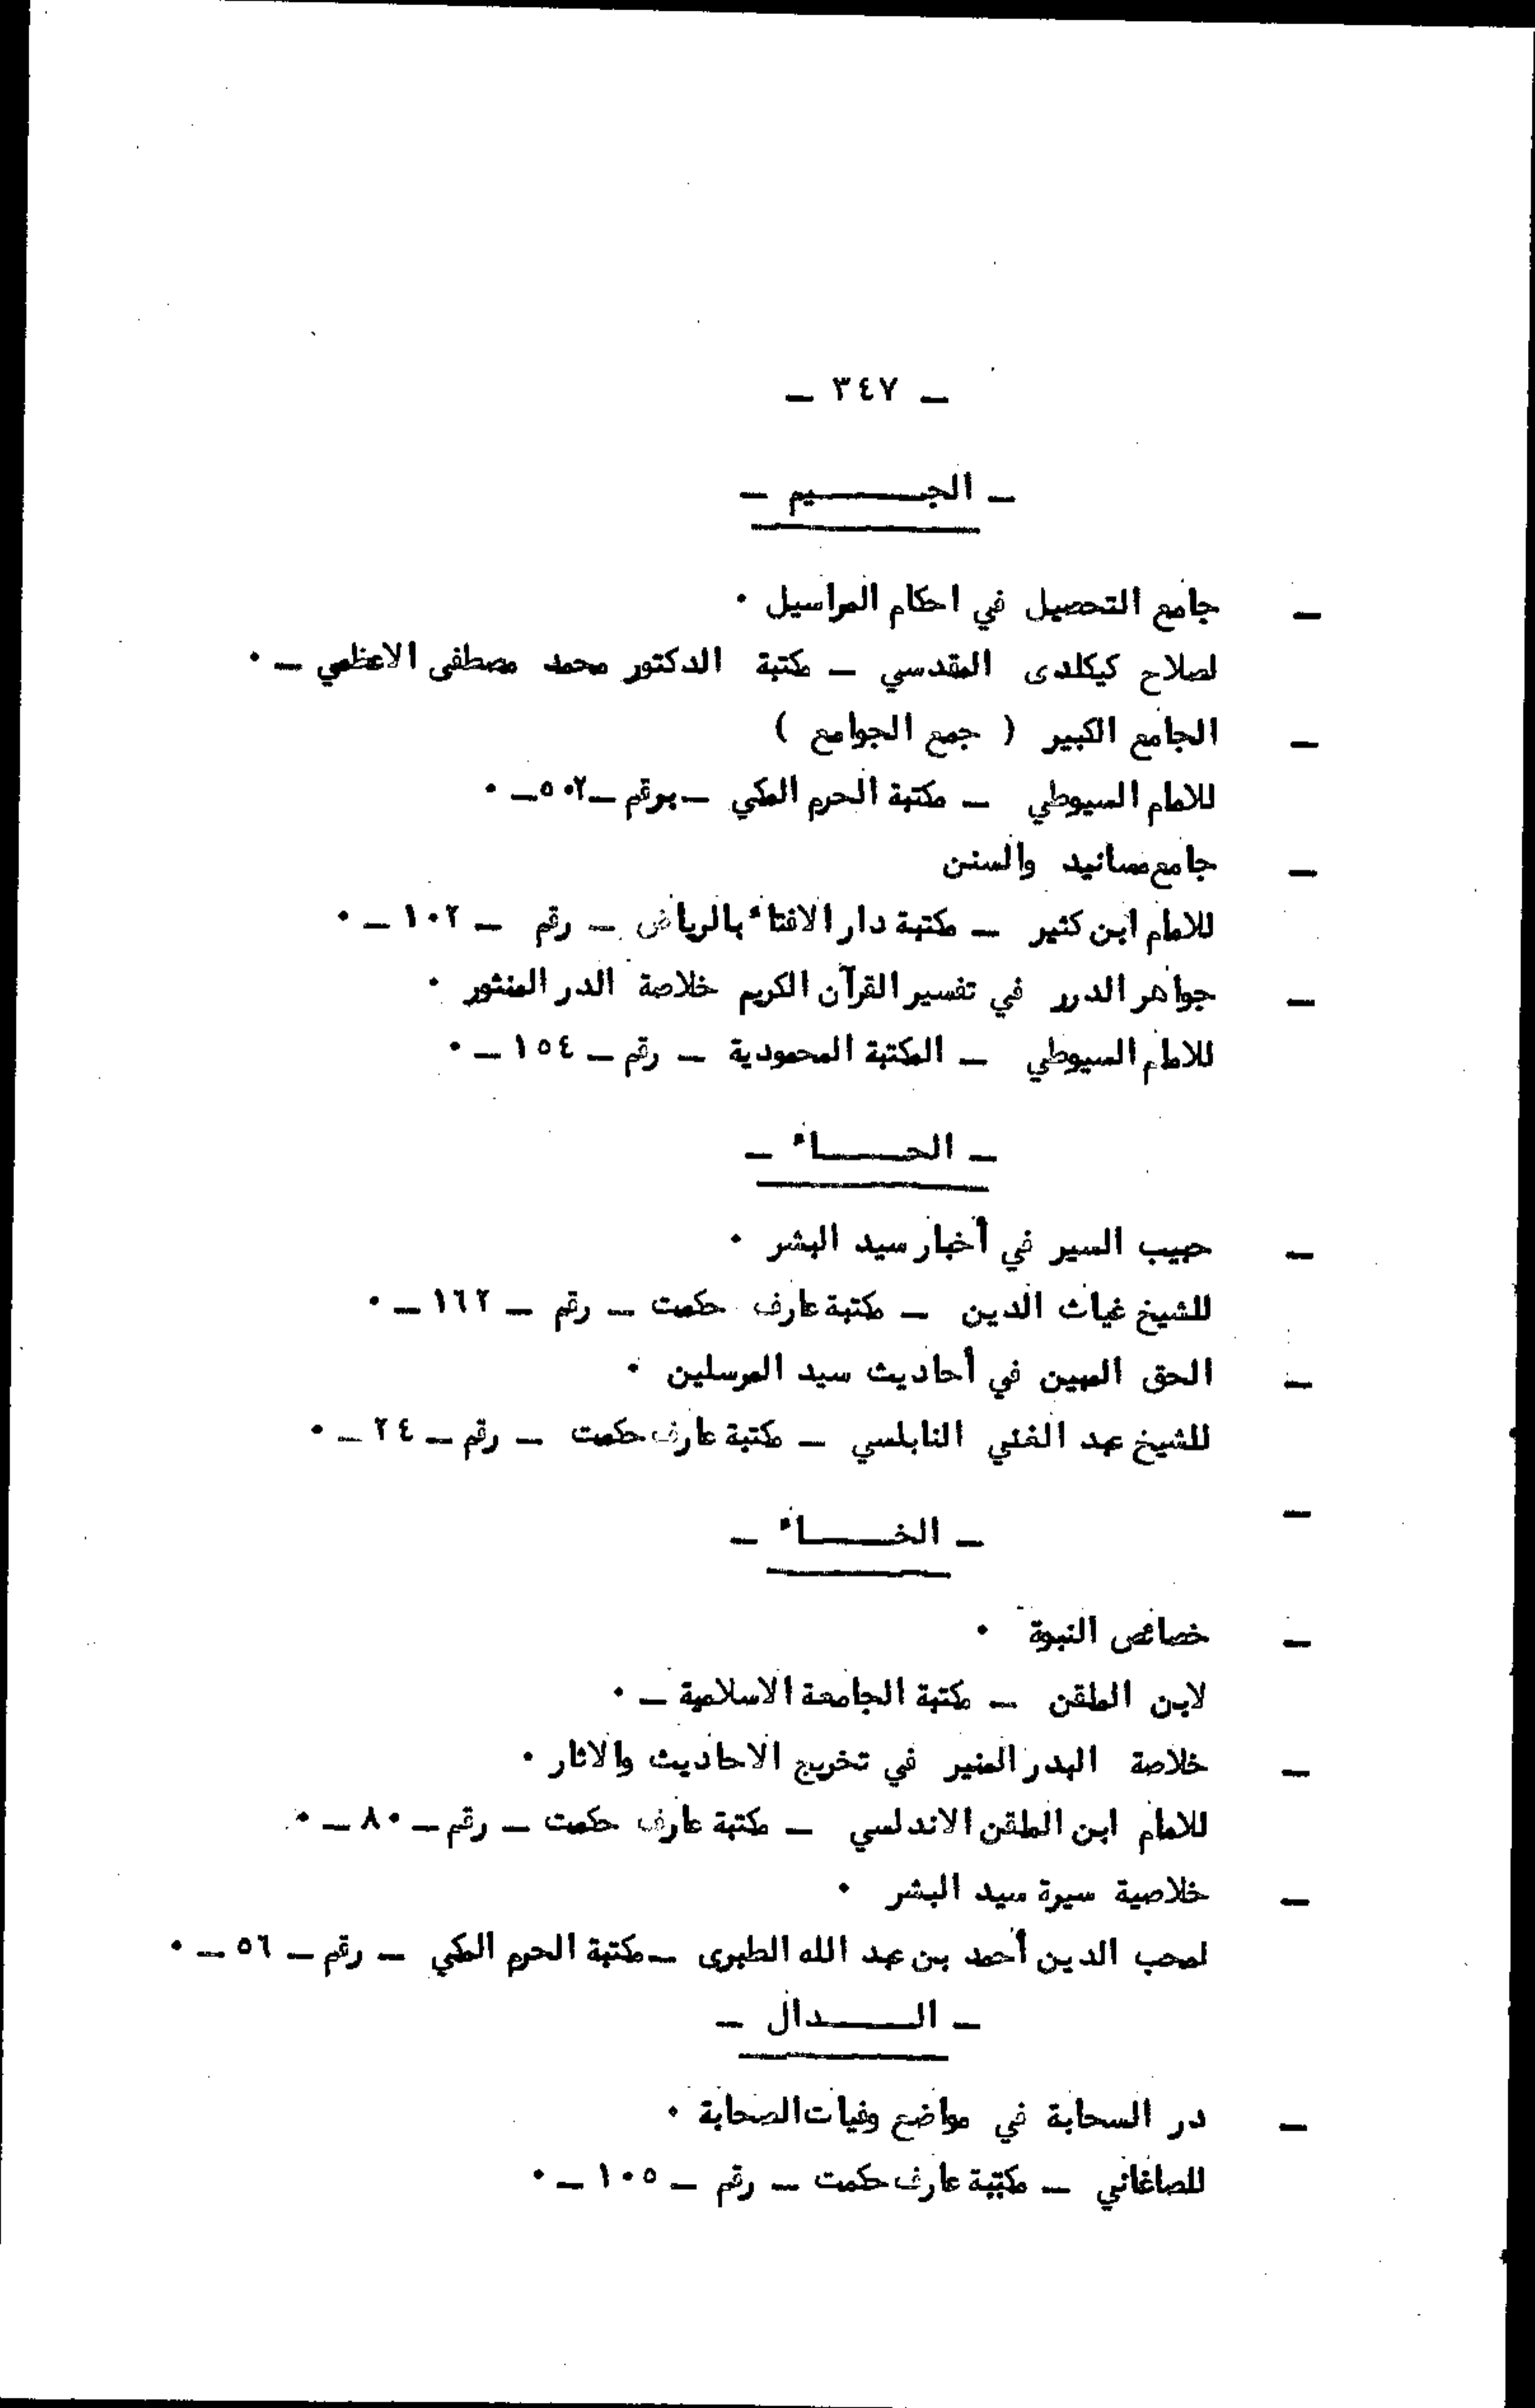 ـ ٣٤٧ ـ
ـ الجـــــيم ـ
ـ جامع التحصيل في احكام المراسيل ٠
لصلاح كيكلدى المقدسي ـ مكتبة الدكتور محمد مصطفى الاعظمي ـ ٠
ـ الجامع الكبير ( جمع الجوامع )
للامام السيوطي ـ مكتبة الحرم المكي ـ برقم ـ ٥٠٢ ـ ٠
ـ جامع مسانيد والسنن
للامام ابن كثير ـ مكتبة دار الافتاء بالرياض ـ رقم ـ ١٠٢ ـ ٠
ـ جواهر الدرر في تفسير القرآن الكريم خلاصة الدر المنثور ٠
للامام السيوطي ـ المكتبة المحمودية ـ رقم ـ ١٥٤ ـ ٠
ـ الحـــــاء ـ
ـ حبيب السير في أخبار سيد البشر ٠
للشيخ غياث الدين ـ مكتبة عارف حكمت ـ رقم ـ ١٦٢ ـ ٠
ـ الحق المبين في أحاديث سيد المرسلين ٠
للشيخ عبد الغني النابلسي ـ مكتبة عارف حكمت ـ رقم ـ ٢٤ ـ ٠
ـ
ـ الخـــــاء ـ
ـ خصائص النبوة ٠
لابن الملقن ـ مكتبة الجامعة الاسلامية ـ ٠
ـ خلاصة البدر المنير في تخريج الاحاديث والاثار ٠
للامام ابن الملقن الاندلسي ـ مكتبة عارف حكمت ـ رقم ـ ٨٠ ـ ٠
ـ خلاصية سيرة سيد البشر ٠
لمحب الدين أحمد بن عبد الله الطبرى ـ مكتبة الحرم المكي ـ رقم ـ ٥٦ ـ ٠
ـ الـــــدال ـ
ـ در السحابة في مواضع وفيات الصحابة ٠
للصاغاني ـ مكتبة عارف حكمت ـ رقم ـ ١٠٥ ـ ٠